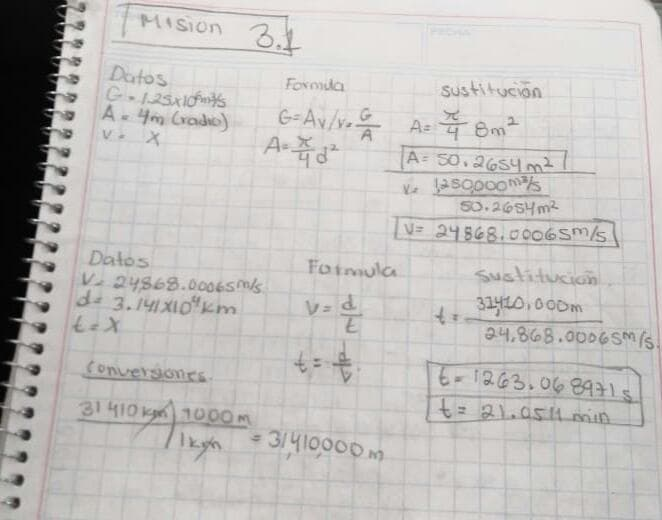 Misión 3.1
Datos
G = 1.25x10⁶m³/s
A = 4m (radio)
v = x
Formula
G=Av/v=G/A
A=π/4 d²
sustitución
A= π/4 8m²
A= 50.2654m²
v= 1,250,000m³/s / 50.2654m²
V= 24868.00065m/s
Datos
V= 24868.00065m/s
d= 3.141x10⁴Km
t=x
Formula
v=d/t
t=d/v
Sustitucion
t= 31,410,000m / 24,868.00065m/s
t= 1263.068971s
t= 21.0511 min
Conversiones
31410km | 1000m / 1km = 31,410,000m